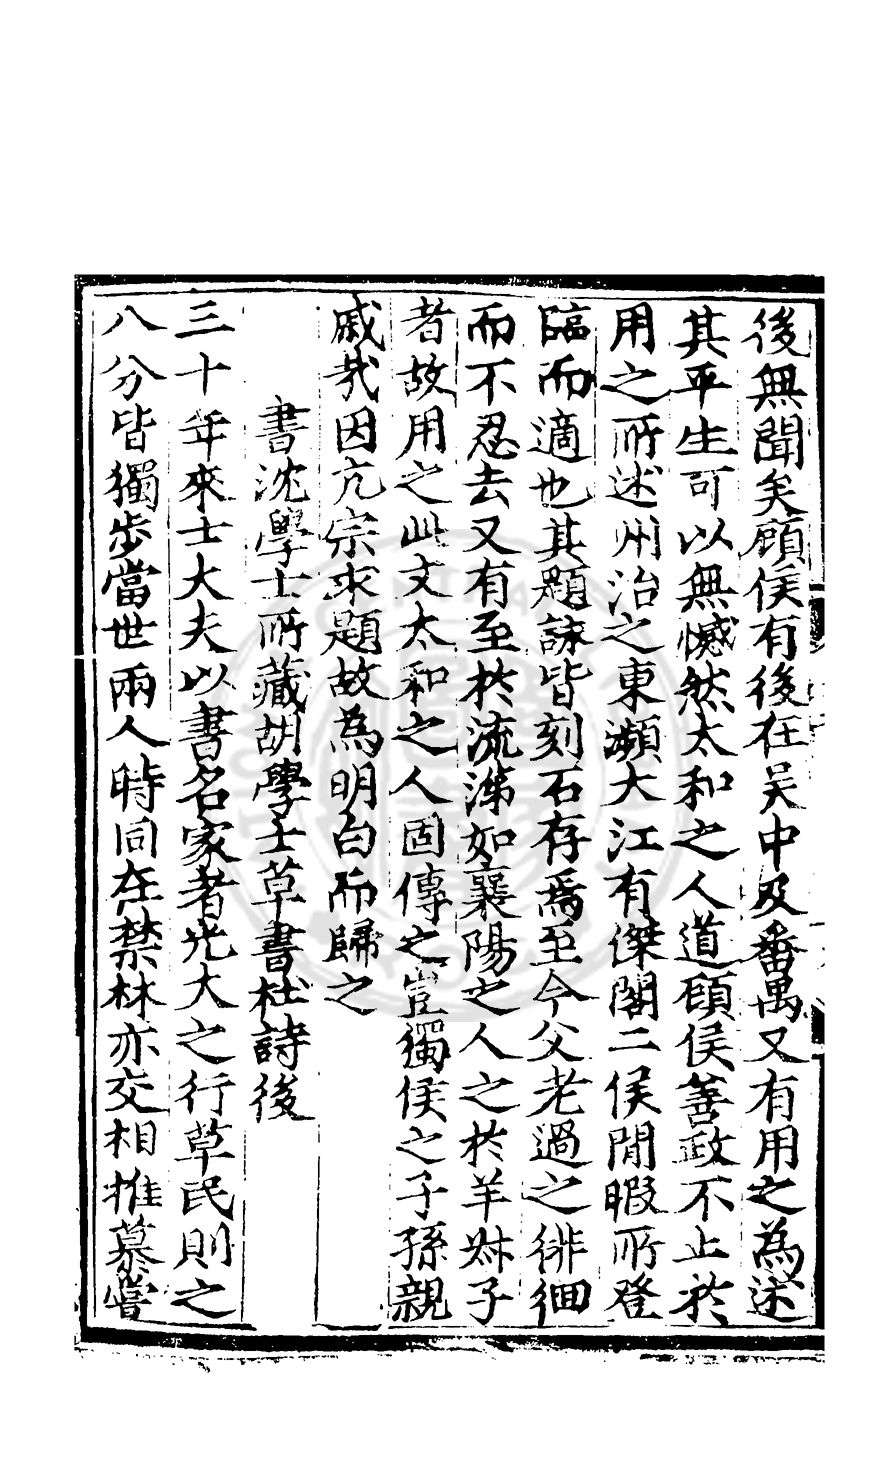 後無聞矣顧侯有後在吴中及番禺又有用之為述
其平生可以無憾然太和之人道顧侯善政不止於
用之所述州治之東瀕大江有傑閣二侯閒暇所登
臨而適也其題詠皆刻石存焉至今父老過之徘徊
而不忍去又有至於流涕如襄陽之人之於羊叔子
者故用之此文太和之人固傳之豈獨侯之子孫親
戚哉因亢宗求題故為明白而歸之
書沈學士所藏胡學士草書杜詩後
三十年來士大夫以書名家者光大之行草民則之
八分皆獨步當世兩人時同在禁林亦交相推慕嘗